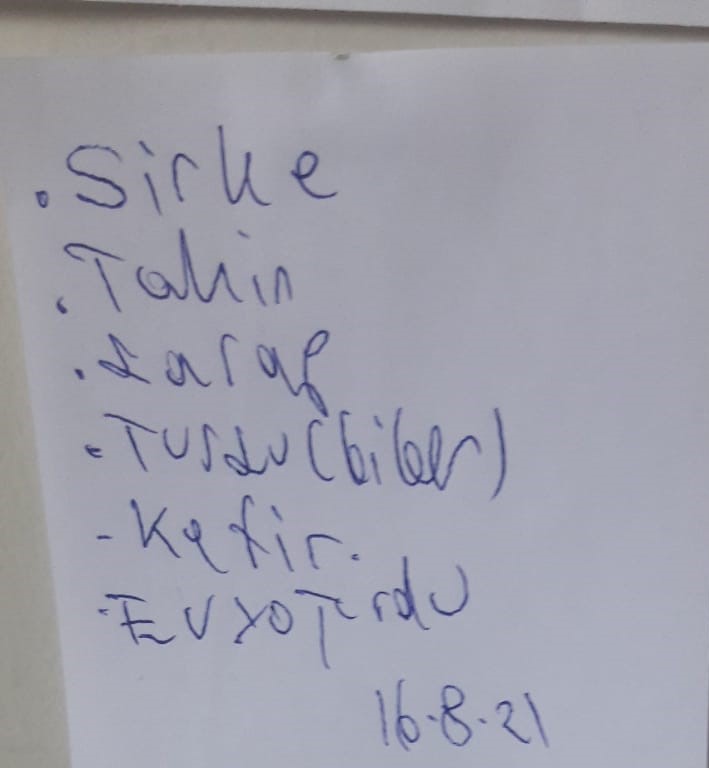 . Sirke
. Tahin
. Şarap
- Turşu (biber)
- Kefir.
. Ev yoğurdu
16.8.21